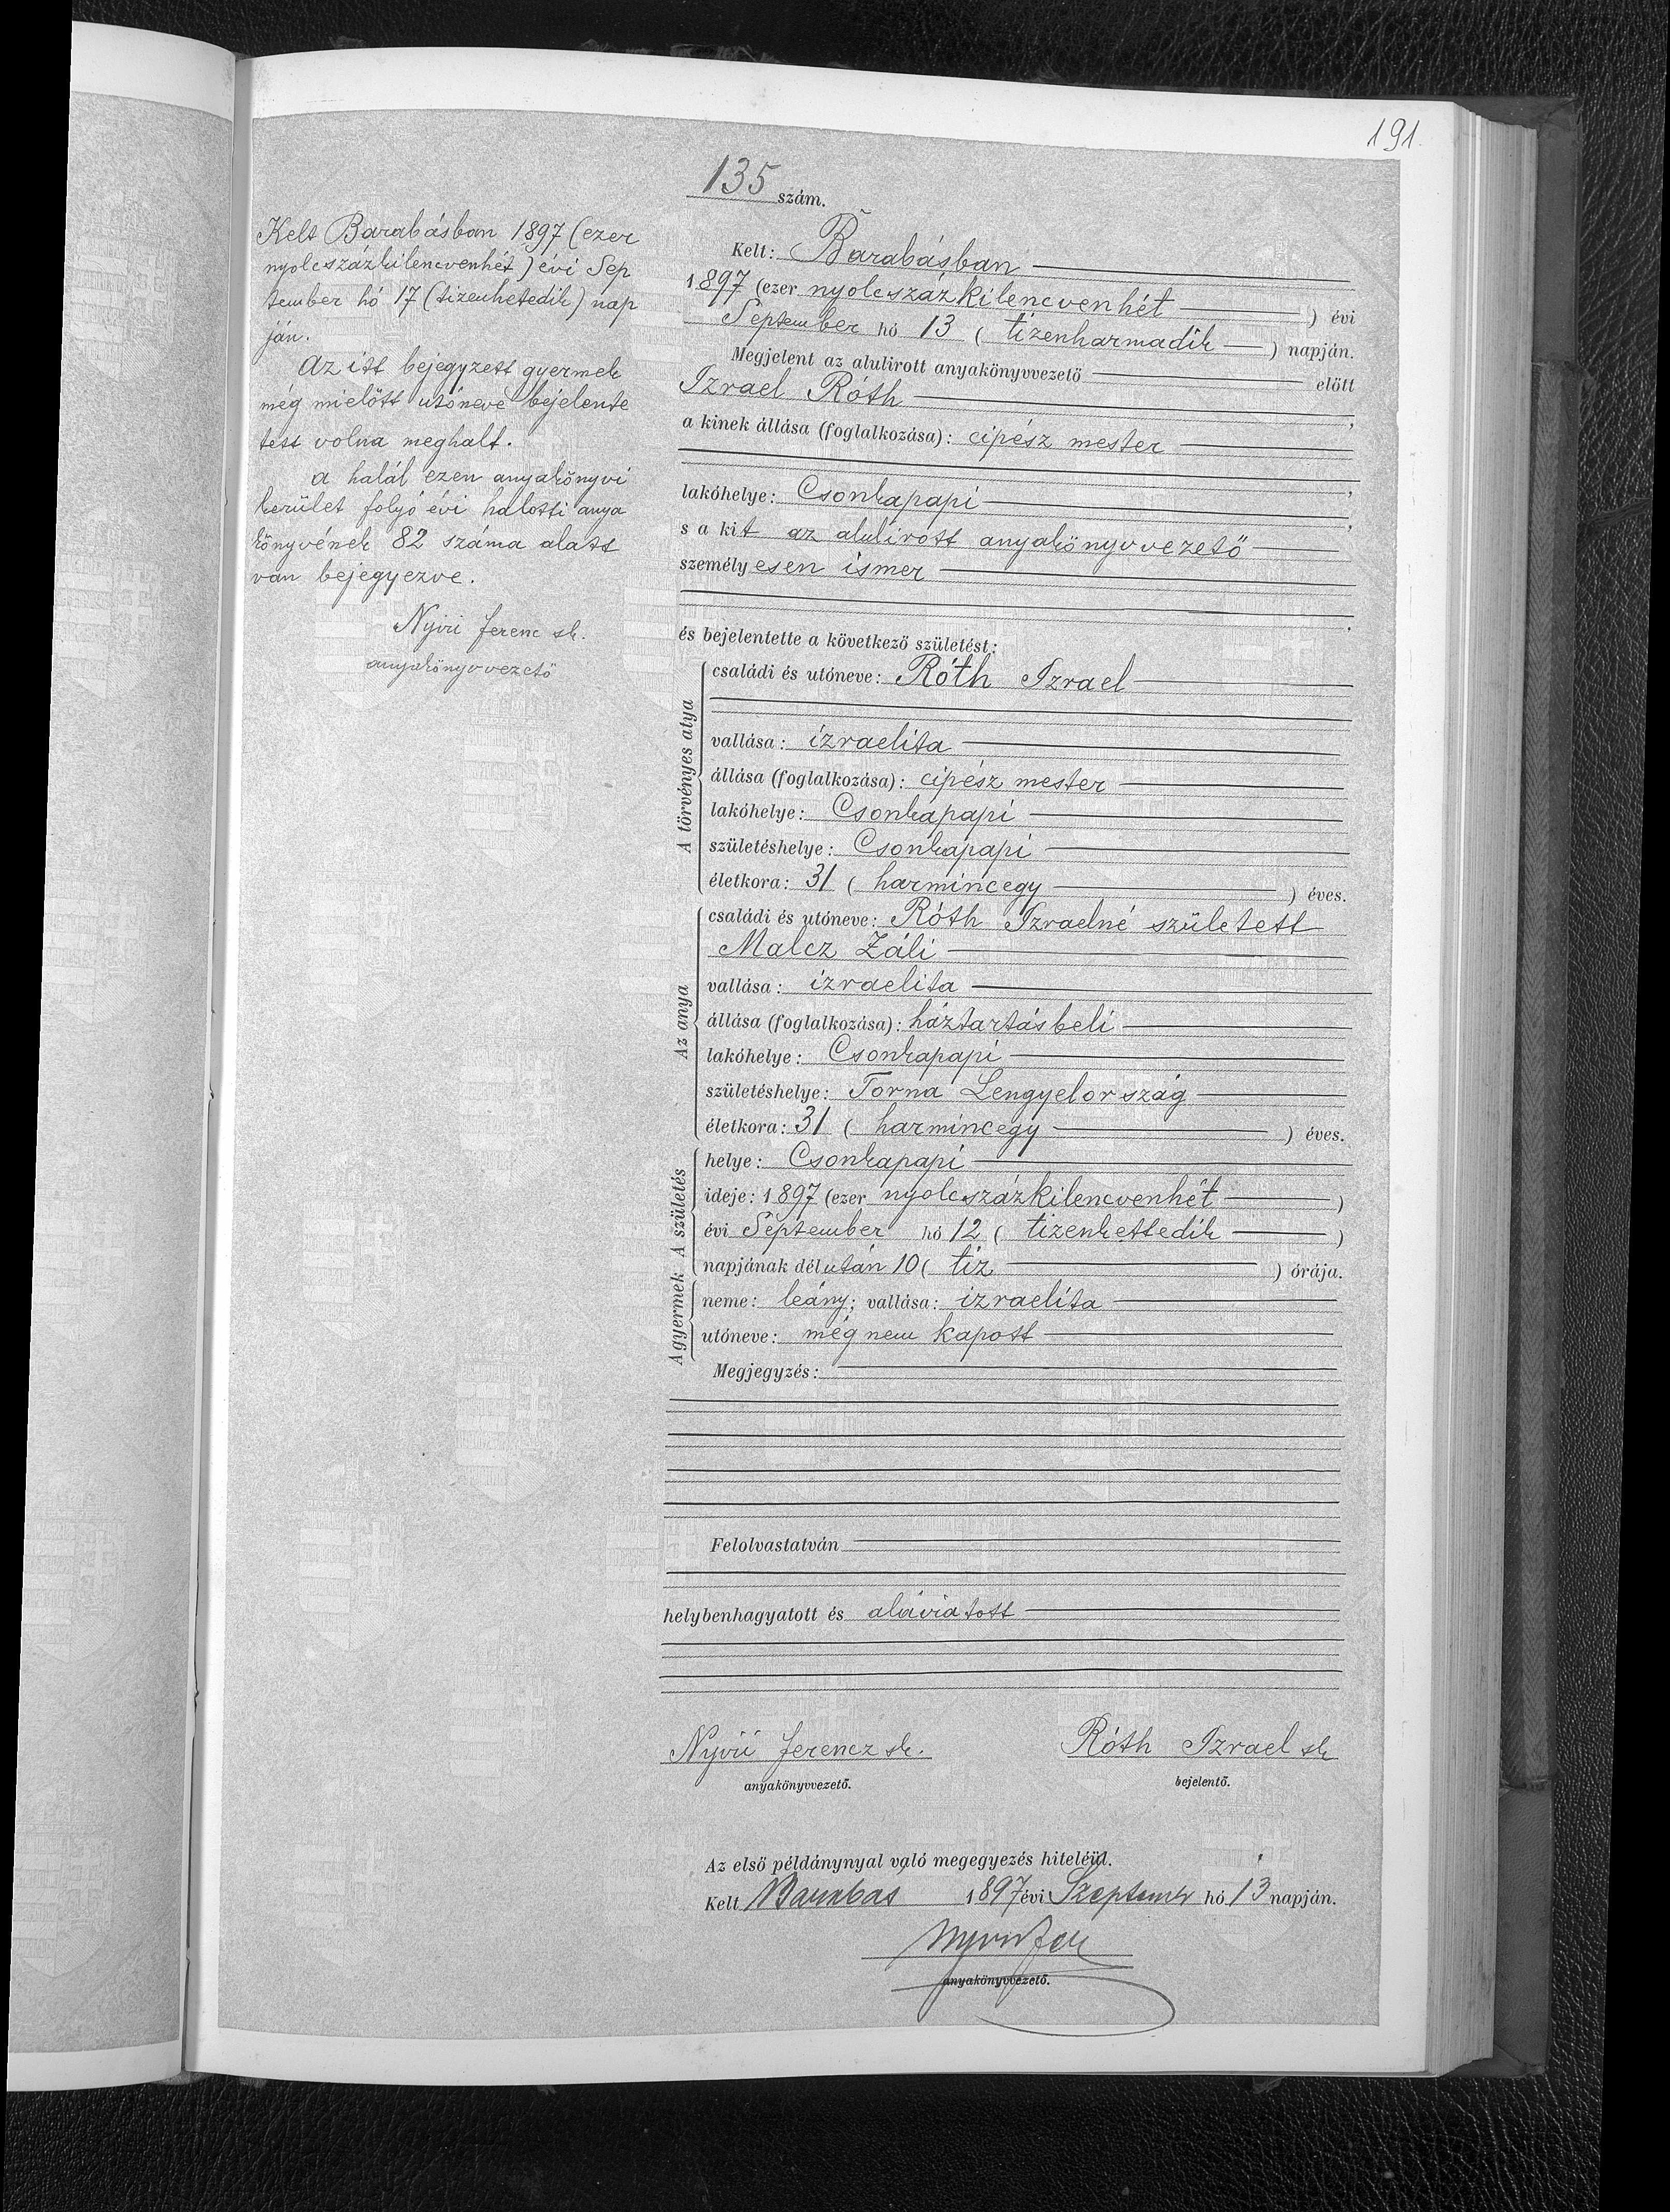 191.
135 szám.
Kelt Barabásban 1897 (ezer
nyolcszázkilencvenhét) évi Sep
tember hó 17 (tizenhetedik) nap
ján.
Az itt bejegyzett gyermek
még mielőtt utóneve bejelente
tett volna meghalt.
A halál ezen anyakönyvi
kerület folyó évi halotti anya
könyvének 82 száma alatt
van bejegyezve.
Nyiri Ferenc sk.
anyakönyvvezető
Kelt: Barabásban
1897 (ezer nyolcszázkilencvenhét ) évi
September hó 13 ( tizenharmadik ) napján.
Megjelent az alulirott anyakönyvvezető előtt
Izrael Róth ,
a kinek állása (foglalkozása): cipész mester
,
lakóhelye: Csonkapapi ,
s a kit az alulirott anyakönyvvezető
személyesen ismer
.
és bejelentette a következő születést:
A törvényes atya
családi és utóneve: Róth Izrael
vallása: izraelita
állása (foglalkozása): cipész mester
lakóhelye: Csonkapapi
születéshelye: Csonkapapi
életkora: 31 ( harmincegy ) éves.
Az anya
családi és utóneve: Róth Izraelné született
Malcz Záli
vallása: izraelita
állása (foglalkozása): háztartásbeli
lakóhelye: Csonkapapi
születéshelye: Torna Lengyelország
életkora: 31 ( harmincegy ) éves.
A születés
helye: Csonkapapi
ideje: 1897 (ezer nyolcszázkilencvenhét )
évi September hó 12 ( tizenkettedik )
napjának délután 10 ( tíz ) órája.
A gyermek
neme: leány; vallása: izraelita
utóneve: még nem kapott
Megjegyzés:
Felolvastatván
helybenhagyatott és aláiratott
Nyiri Ferencz sk. Róth Izrael sk
anyakönyvvezető. bejelentő.
Az első példánynyal való megegyezés hiteléül.
Kelt Barabas 1897 évi Szeptemr hó 13 napján.
Nyiri Fer
anyakönyvvezető.